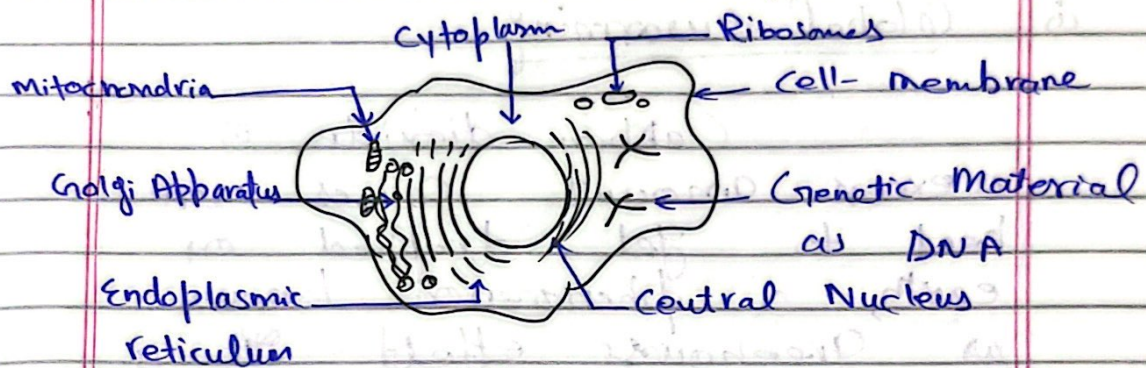 Cytoplasm
Ribosomes
Mitochondria
Cell- membrane
Golgi Apparatus
Genetic Material
as DNA
Endoplasmic
reticulum
Central Nucleus